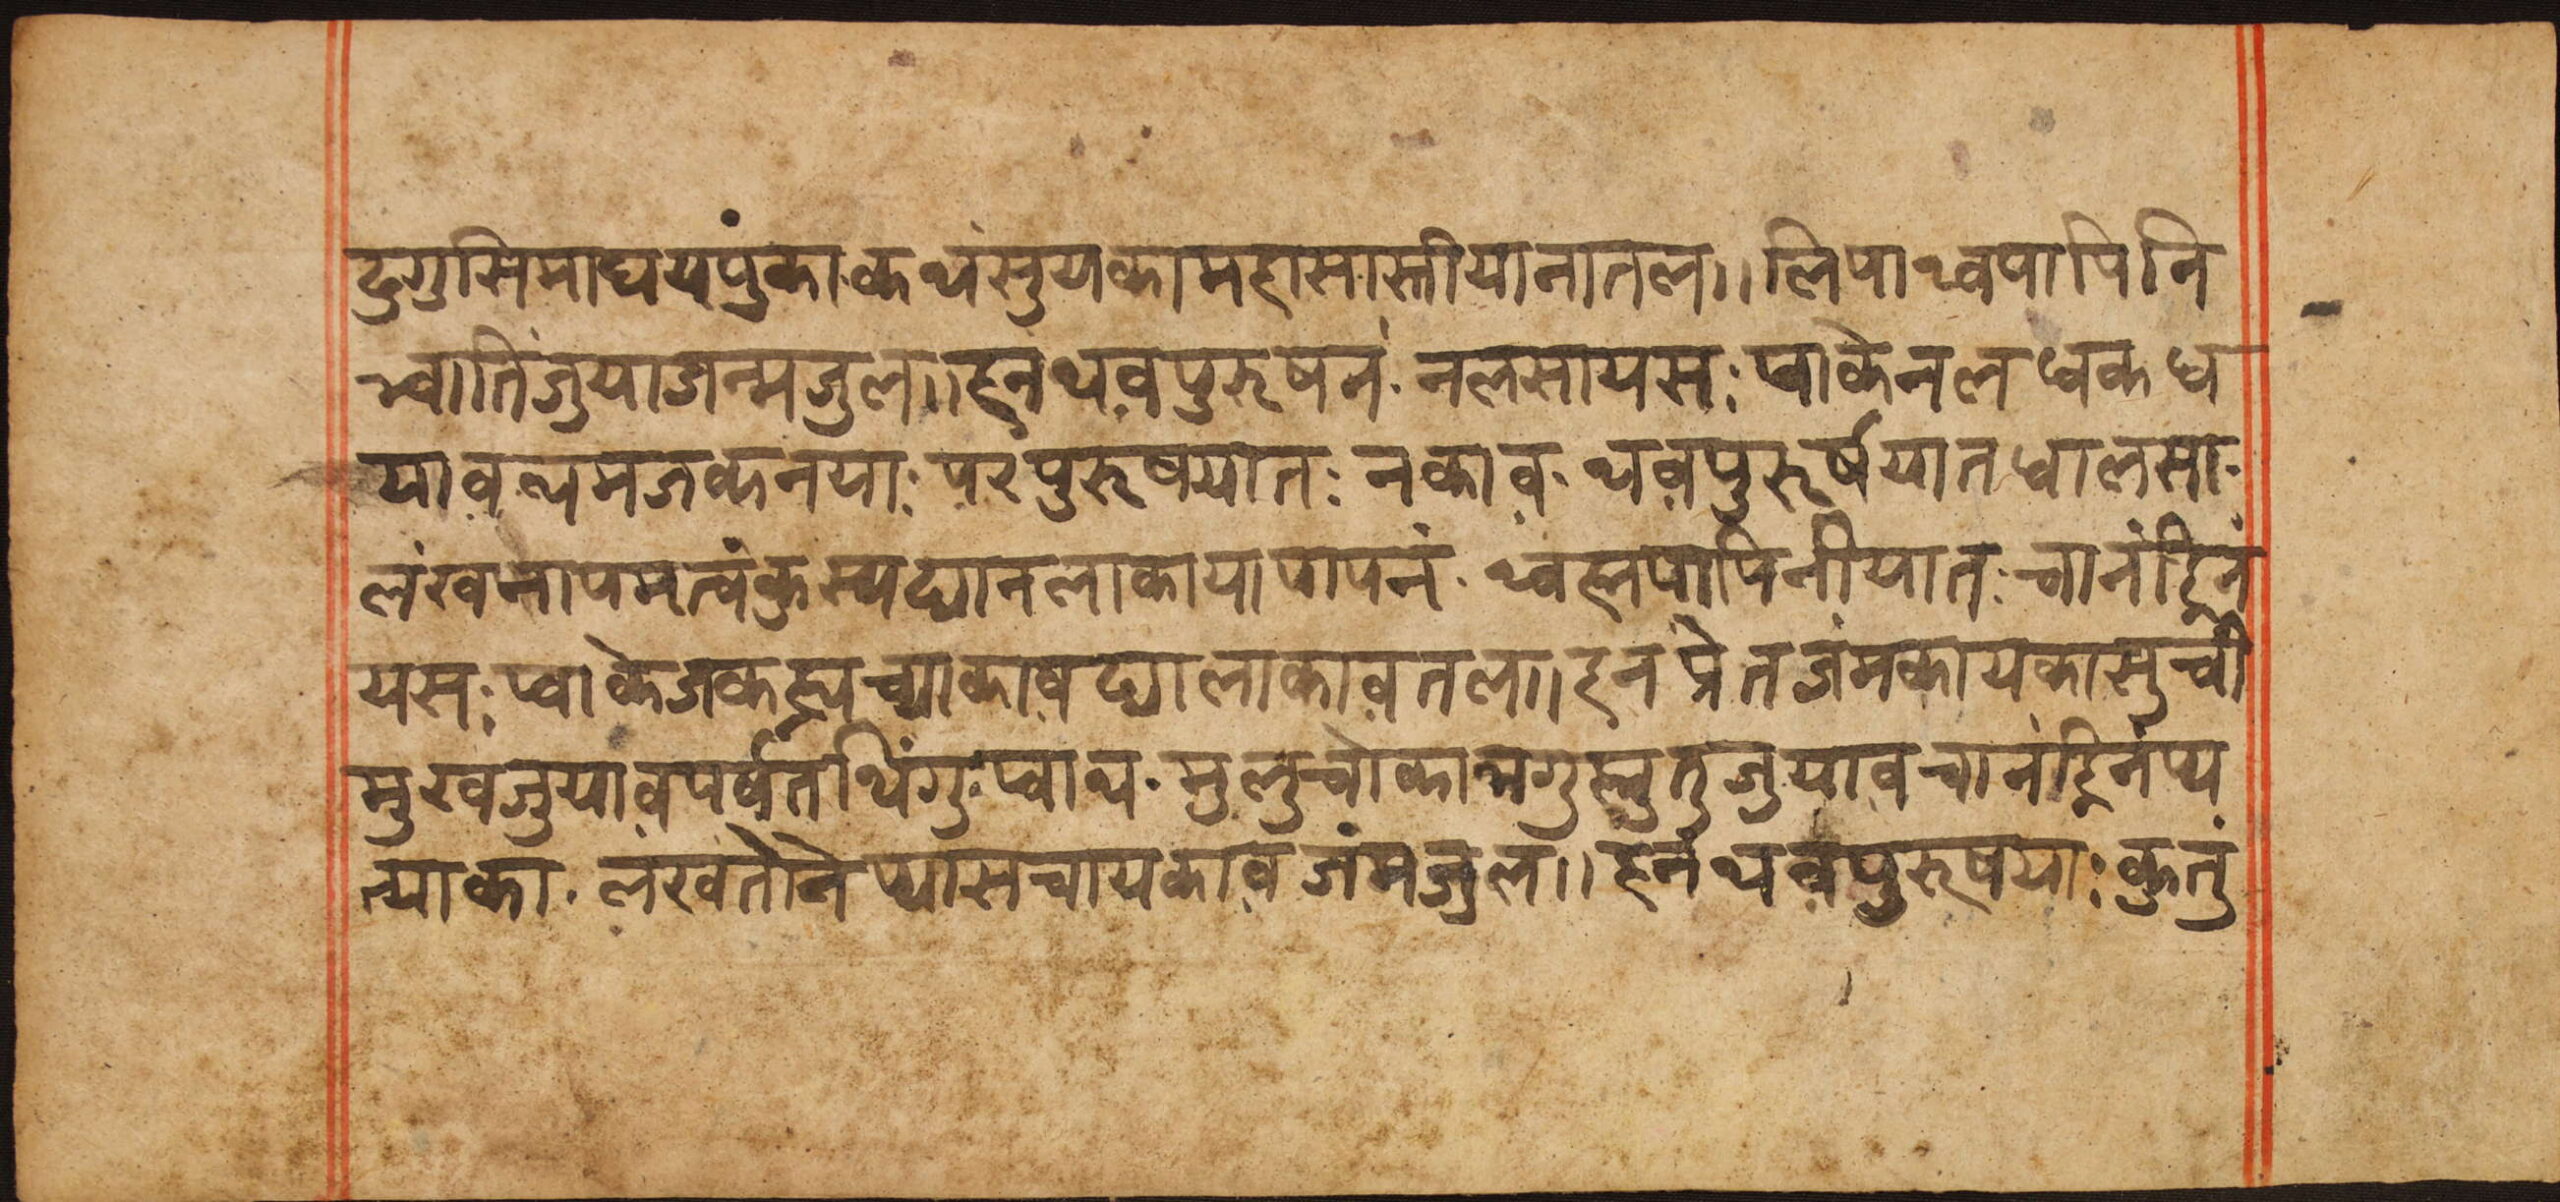 दुगुसिमाघयपुंका.कथंसुयकामहासास्तीयानातल॥लिपाथ्वपापिनि
च्वातिंजुयाजन्मजुल॥हनंथवपुरूषनं.नलसायस:प्वाकेनलधकध
यावत्यमजकनया:परंपुरूषयात:नकाव.थवपुरूर्षयातधालसा.
लंखनापमत्वंकुस्यद्यानलाकायापापनं.थ्वह्मपापिनीयात:चानंह्निनं
यस:प्वाकेजकह्यच्याकावद्यालाकावतल॥हनप्रेतजंमकायकासुची
मुखजुयावपर्वतथिंगु:प्वाथ.मुलुचोकान्नगुह्लुतुजुयावचानंह्निनंप्य
त्याका.लंखतेनेप्यासचायकावजंमजुल॥हनंथवपुरूषया:कुतुं